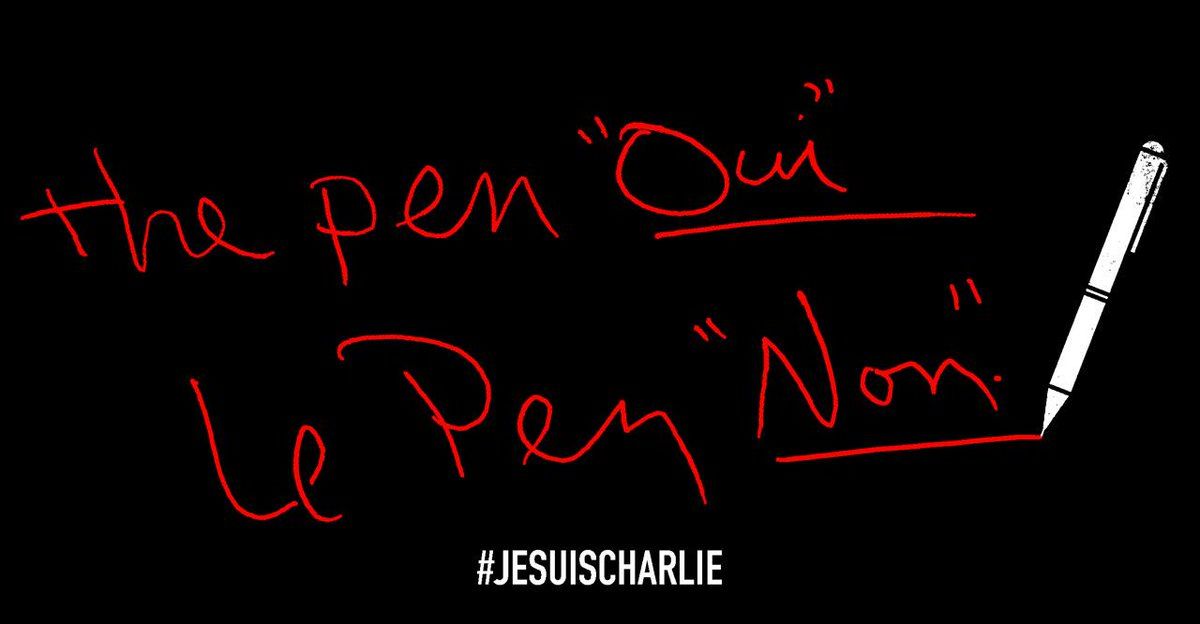 the pen "Oui"
Le Pen "Non."
#JESUISCHARLIE